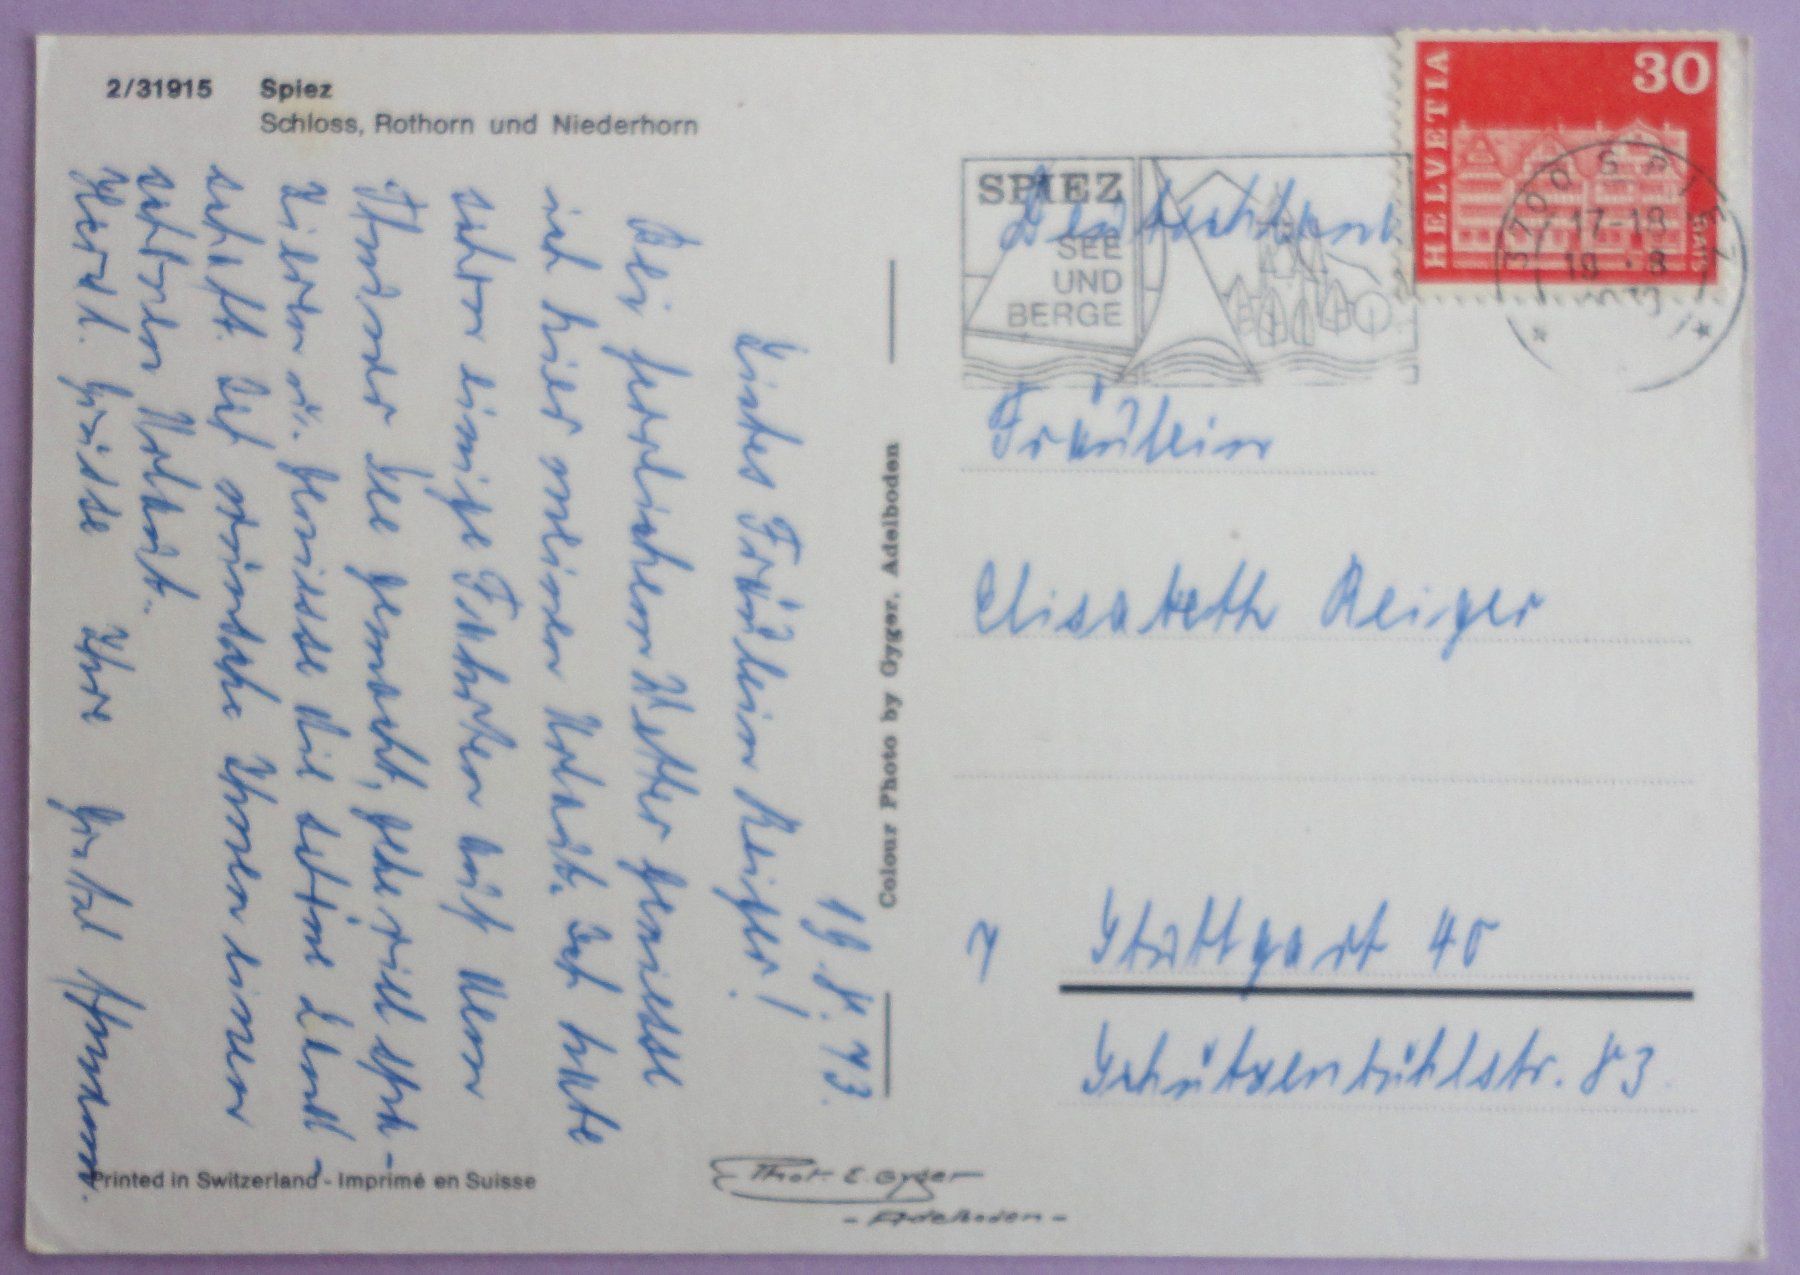 2/31915 Spiez
Schloss, Rothorn und Niederhorn
19.8.73.
Liebes Fräulein Reiger!
Bei herrlichem Wetter geniesse
ich hier meinen Urlaub. Ich habe
schon einige Fahrten auf dem
Thuner See gemacht, gehe viel spa-
zieren u. geniesse die schöne Land-
schaft. Ich wünsche Ihnen einen
schönen Urlaub.
Herzl. Grüsse Ihre
Colour Photo by Gyger, Adelboden
Printed in Switzerland - Imprimé en Suisse
Phot. E. Gyger
- Adelboden -
SPIEZ
SEE
UND
BERGE
Deutschland
HELVETIA
30
3700 SPIEZ
17-18
19.8
Fräulein
Elisabeth Reiger
7 Stuttgart 40
Schützenbühlstr. 83